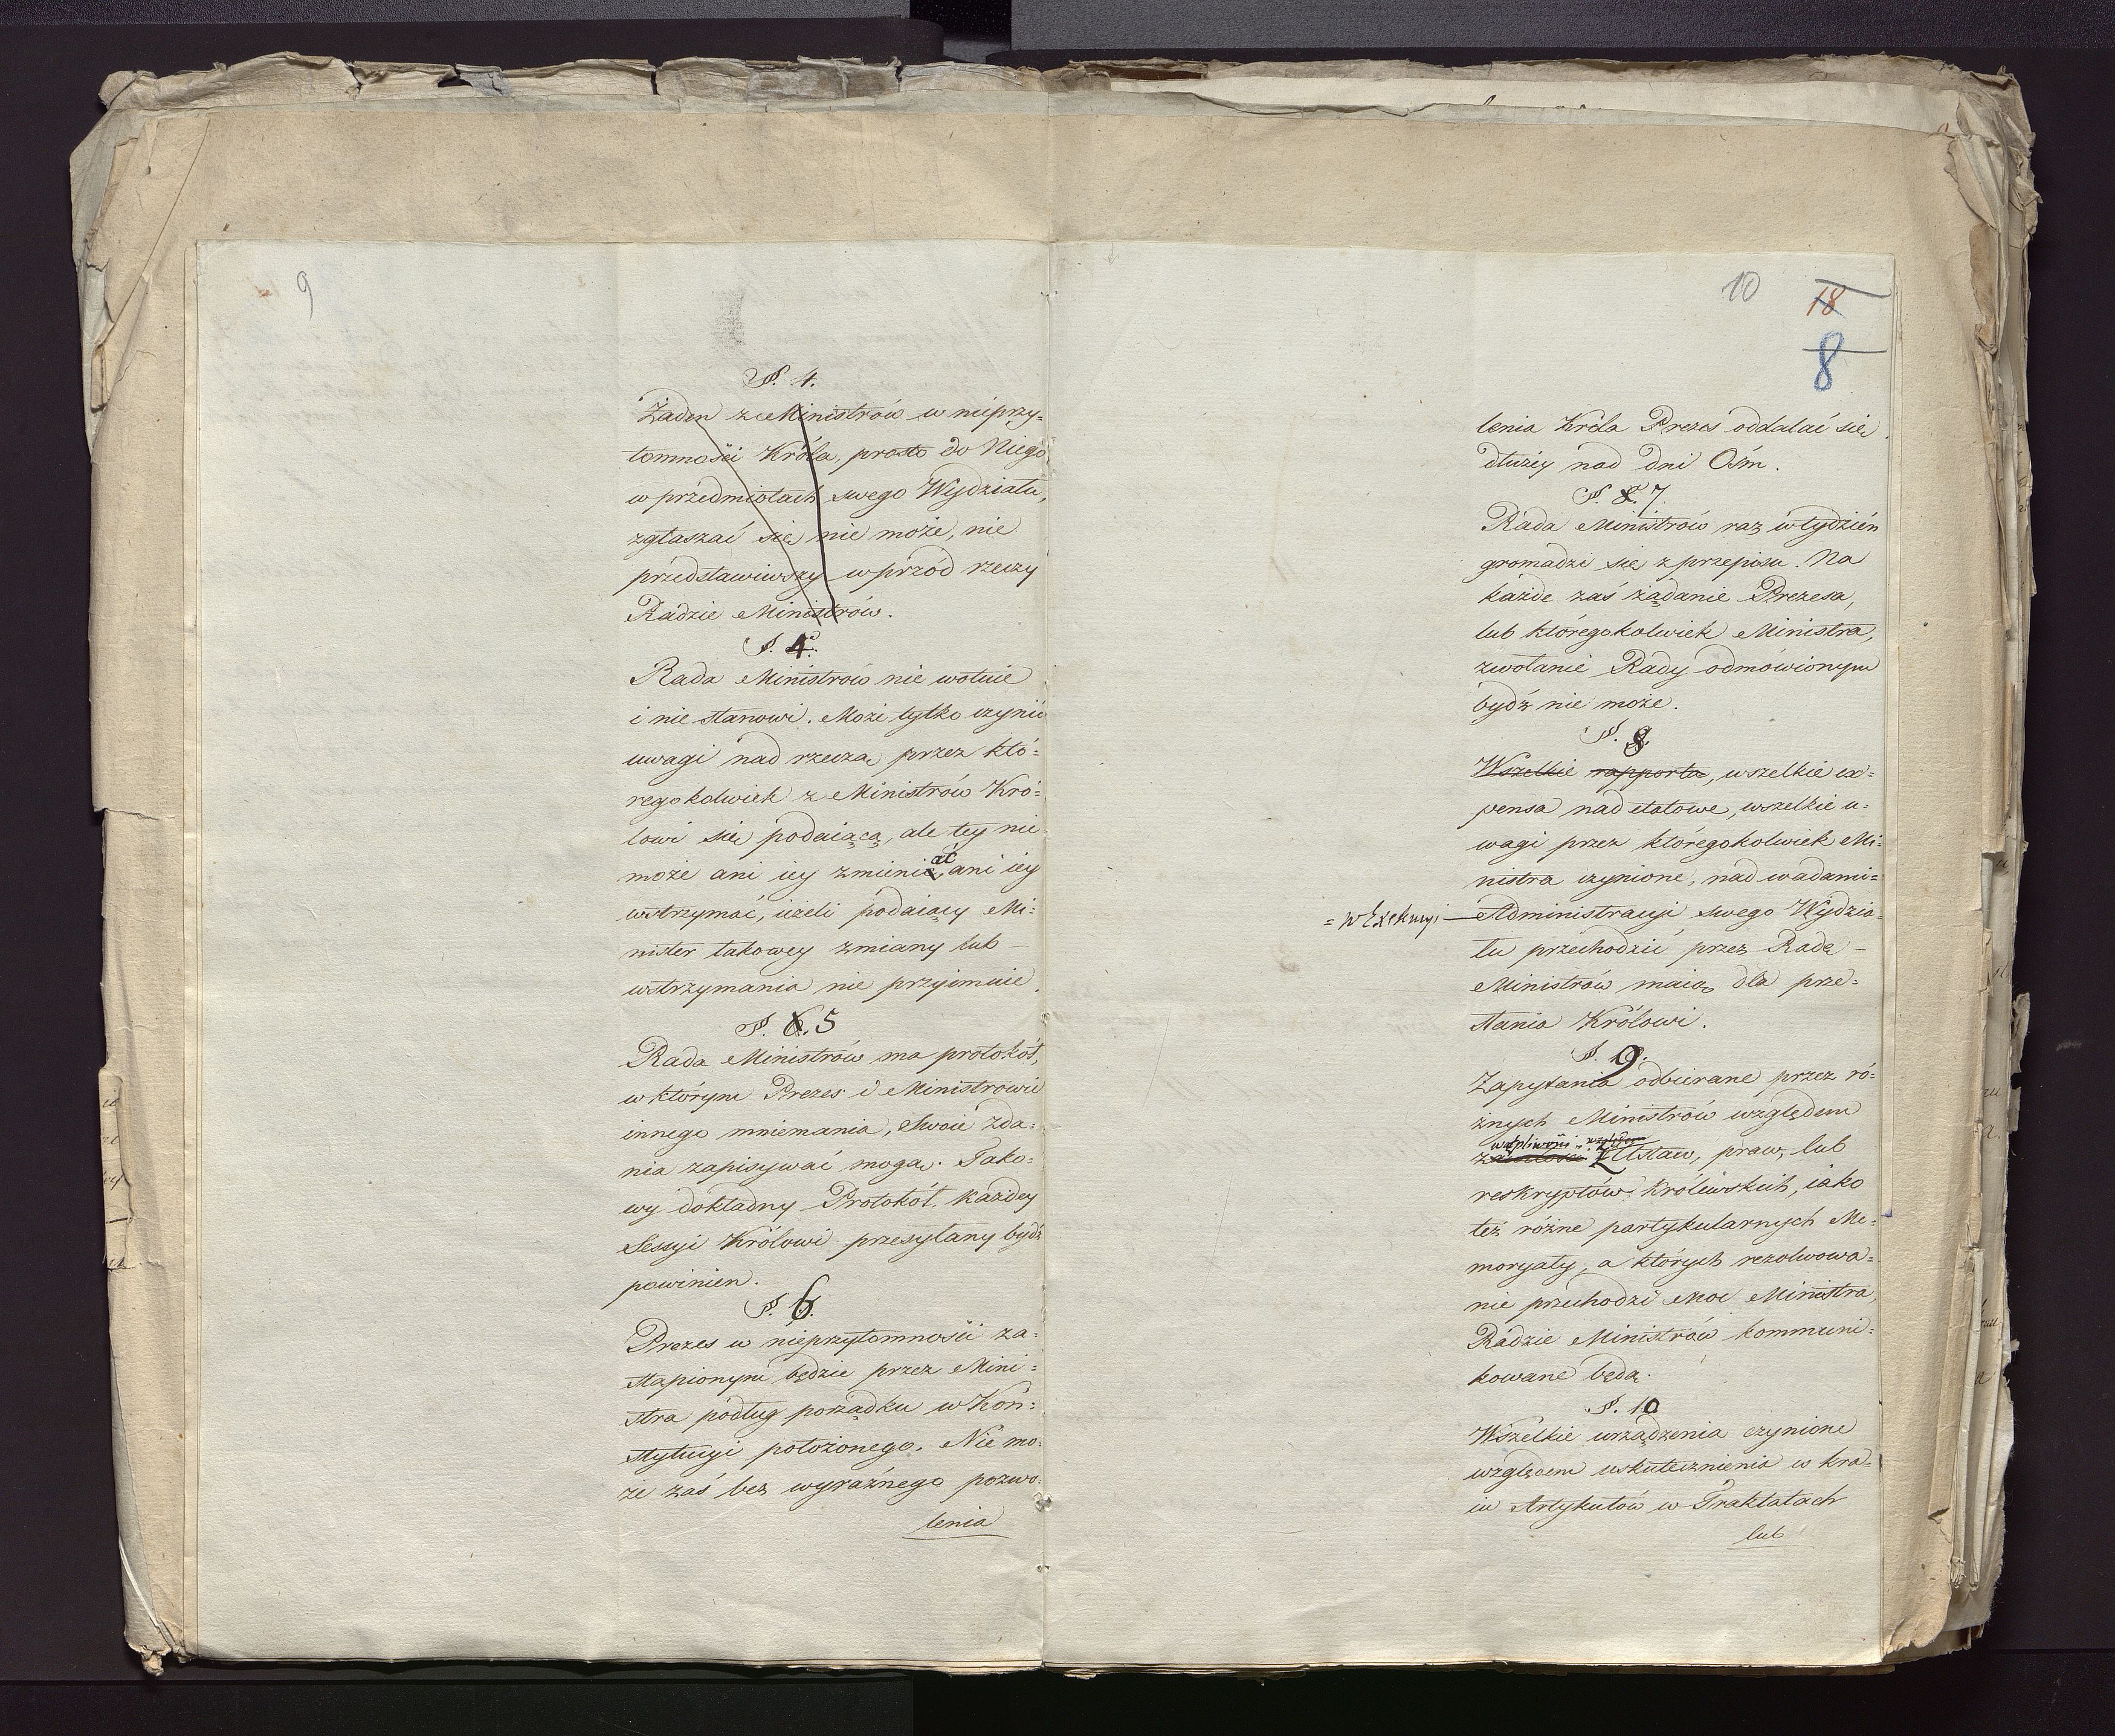 9
§. 4.
Żaden z Ministrów w nieprzy=
tomności Króla, prosto do Niego
w przedmiotach swego Wydziału,
zgłaszać się nie może, nie
przedstawiwszy wprzód rzeczy
Radzie Ministrów.
§. 4.
Rada Ministrów nie wotuie
i nie stanowi. Może tylko czynić
uwagi nad rzeczą przez któ=
regokolwiek z Ministrów Kró=
lowi się podaiącą, ale tey nie
może ani iey zmieniać, ani iey
wstrzymać, ieżeli podaiący Mi=
nister takowey zmiany lub —
wstrzymania nie przyimuie.
§. 6. 5
Rada Ministrów ma protokół,
w którym Prezes i Ministrowie
innego mniemania, swoie zda=
nia zapisywać mogą. Tako=
wy dokładny Protokół, każdey
Sessyi Królowi przesyłany bydź
powinien.
§. 6.
Prezes w nieprzytomności za=
stąpionym będzie przez Mini=
stra podług porządku w Kon=
stytucyi położonego. Nie mo=
że zaś bez wyraźnego pozwo=
lenia
10
18
8
lenia Króla Prezes oddalać się
dłużey nad dni Ośm.
§. 8. 7.
Rada Ministrów raz w tydzień
gromadzi się z przepisu. Na
każde zaś żądanie Prezesa,
lub któregokolwiek Ministra,
zwołanie Rady odmówionym
bydź nie może.
§. 8.
Wszelkie rapporta, wszelkie ex=
pensa nad etatowe, wszelkie u=
wagi przez któregokolwiek Mi=
nistra czynione, nad wadami=
= w Exekucyi — Administracyi swego Wydzia=
łu przechodzić przez Radę —
Ministrów maią, dla prze=
słania Królowi.
§. 9.
Zapytania odbierane przez ró=
żnych Ministrów względem
wątpliwości względem
Ustaw, praw, lub
reskryptów Królewskich, iako
też różne partykularnych Me=
moryały, a których rezolwowa=
nie przechodzi moc Ministra,
Radzie Ministrów kommuni=
kowane będą.
§. 10
Wszelkie urządzenia czynione
względem uskutecznienia w kra=
iu Artykułów w Traktatach
lub